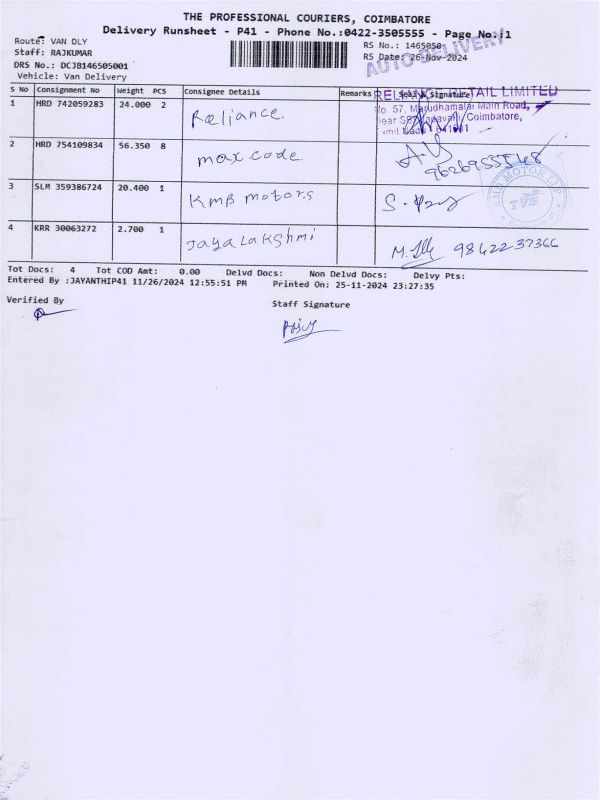 THE PROFESSIONAL COURIERS, COIMBATORE
Delivery Runsheet - P41 - Phone No.:0422-3505555 - Page No.:1
Route: VAN DLY
RS No.: 1465050
AUTO DELIVERY
Staff: RAJKUMAR
RS Date: 26-Nov-2024
DRS No.: DCJB146505001
Vehicle: Van Delivery
S No Consignment No Weight PCS Consignee Details Remarks Seal & Signature
RELIANCE RETAIL LIMITED
No 57, Marudhamalai Main Road,
Coimbatore,
1 HRD 742059283 24.000 2 Reliance.
2 HRD 754109834 56.350 8 max code.
3 SLM 359386724 20.400 1 KMB motors
KMB MOTOR LLP
TVS
4 KRR 30063272 2.700 1 Jaya Lakshmi 98422 37366
Tot Docs: 4 Tot COD Amt: 0.00 Delvd Docs: Non Delvd Docs: Delvy Pts:
Entered By :JAYANTHIP41 11/26/2024 12:55:51 PM Printed On: 25-11-2024 23:27:35
Verified By
Staff Signature